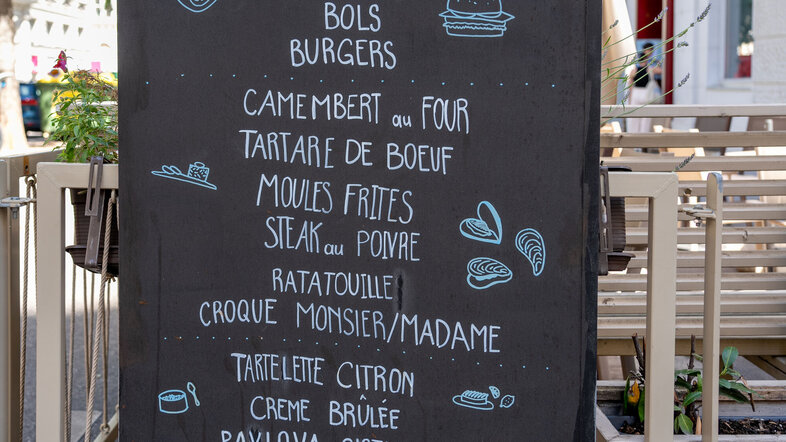 BOLS
BURGERS
CAMEMBERT au FOUR
TARTARE DE BOEUF
MOULES FRITES
STEAK au POIVRE
RATATOUILLE
CROQUE MONSIER/MADAME
TARTELETTE CITRON
CREME BRÛLÉE
PAVLOVA